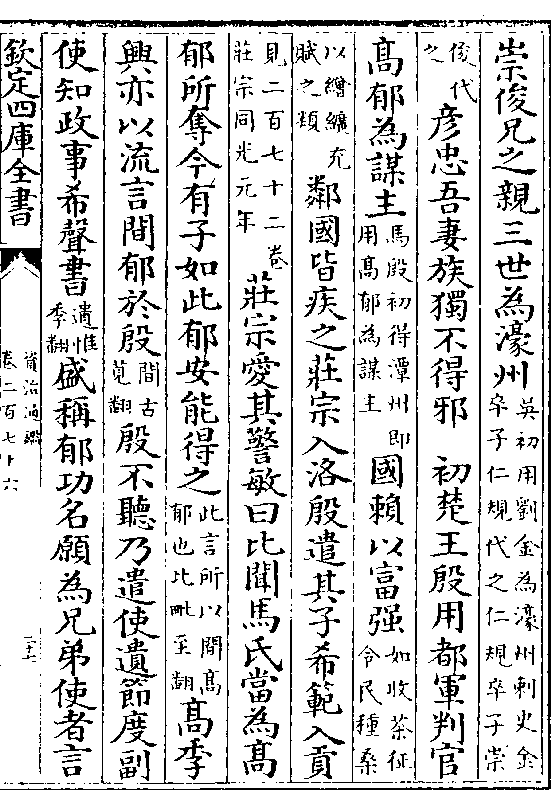 崇俊兄之親三世為濠州吳初用劉金為濠州刺史金卒子仁規代之仁規卒子崇
俊代之彦忠吾妻族獨不得邪　初楚王殷用都軍判官
髙郁為謀主馬殷初得潭州即用髙郁為謀主國賴以富强如收茶征令民種桑
以繒纊充賦之類鄰國皆疾之莊宗入洛殷遣其子希範入貢
見二百七十二卷莊宗同光元年莊宗愛其警敏曰比聞馬氏當為髙
郁所奪今有子如此郁安能得之此言所以間髙郁也比毗至翻髙季
興亦以流言間郁於殷間古莧翻殷不聽乃遣使遺節度副
使知政事希聲書遺惟季翻盛稱郁功名願為兄弟使者言
欽定四庫全書
資治通鑑
卷二百七十六